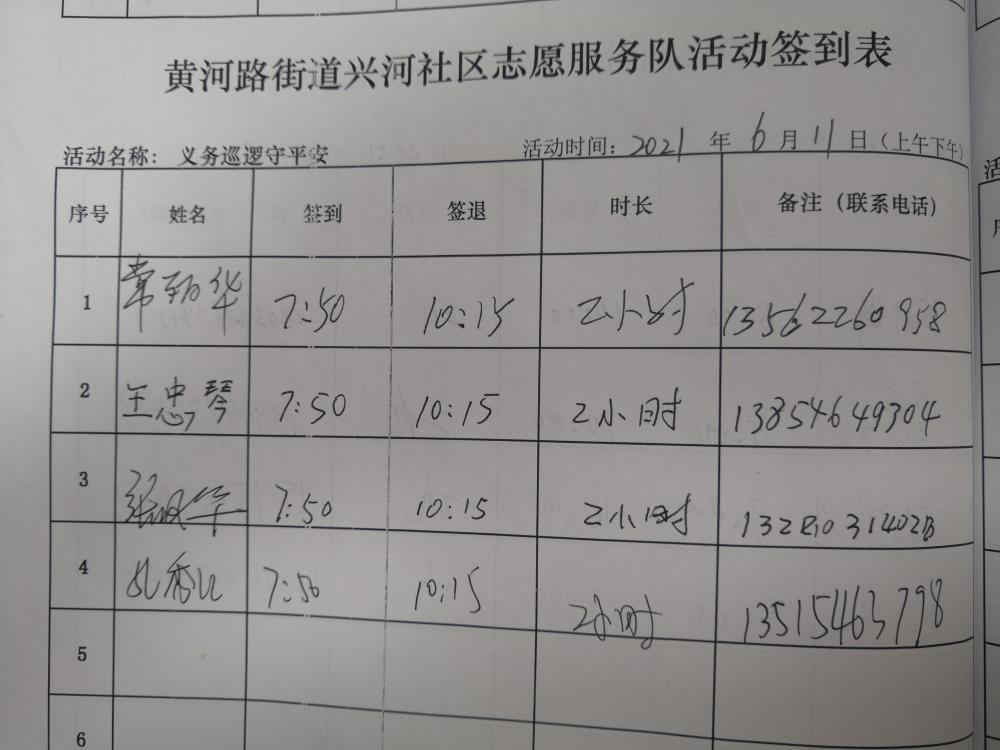 黄河路街道兴河社区志愿服务队活动签到表
活动名称：义务巡逻守平安 活动时间：2021 年 6 月 11 日（上午下午）
序号 姓名 签到 签退 时长 备注（联系电话）
1 7:50 10:15 2小时 13562260958
2 王忠琴 7:50 10:15 2小时 13854649304
3 7:50 10:15 2小时
4 7:50 10:15 2小时 13515463798
5
6